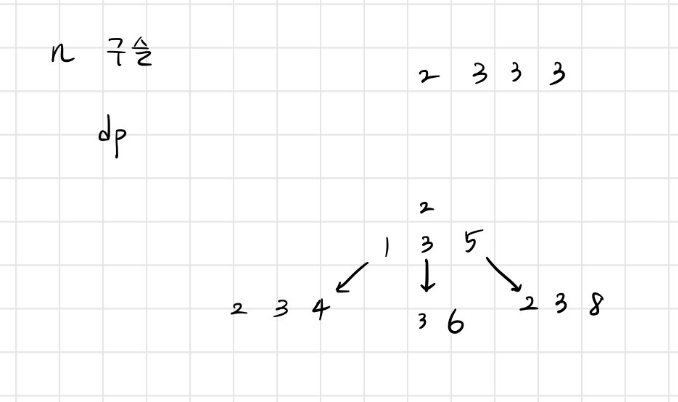 n 구슬
2 3 3 3
dp
2
1 3 5
2 3 4
3 6
2 3 8